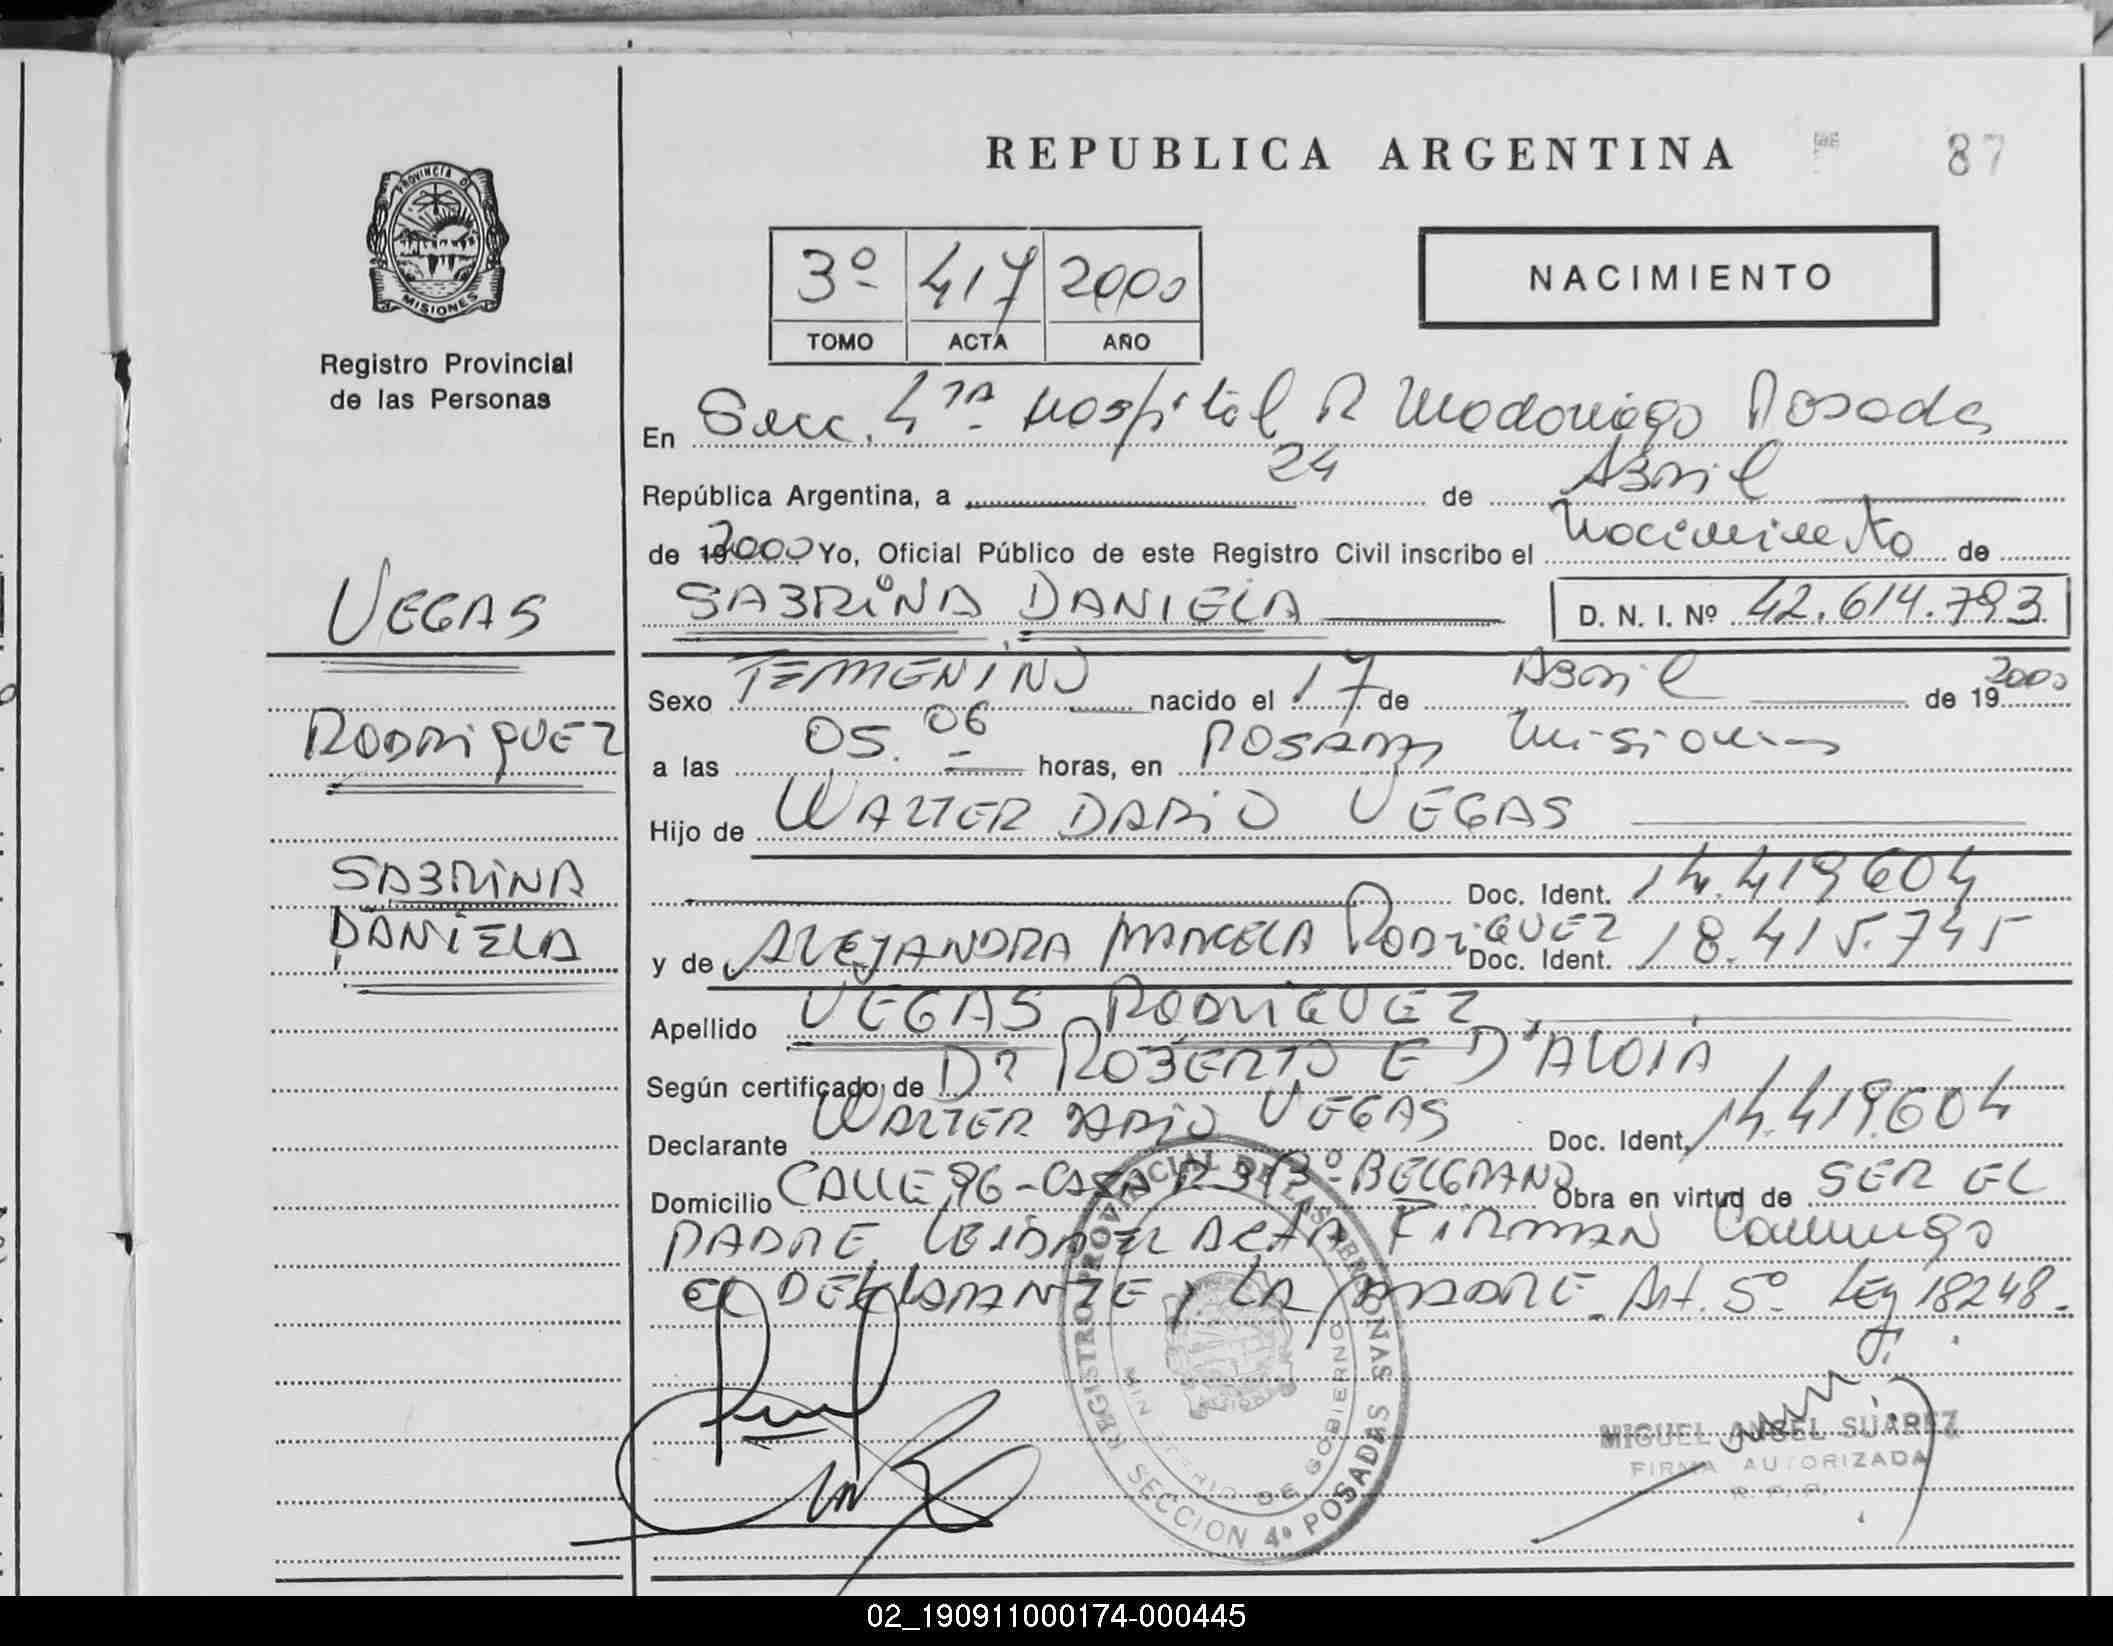 REPUBLICA ARGENTINA
87
PROVINCIA DE
MISIONES
Registro Provincial
de las Personas
3º 417 2000
TOMO ACTA AÑO
NACIMIENTO
En Secc. 4ta Hospital R Madariaga Posadas
República Argentina, a 24 de Abril
de 192000 Yo, Oficial Público de este Registro Civil inscribo el Nacimiento de
SABRINA DANIELA D. N. I. Nº 42.614.793
VEGAS
RODRIGUEZ
SABRINA
DANIELA
Sexo FEMENINO nacido el 17 de Abril de 19 2000
a las 05.06 horas, en POSADAS Misiones
Hijo de WALTER DARIO VEGAS
Doc. Ident. 14.419604
y de ALEJANDRA MARCELA RODRIGUEZ Doc. Ident. 18.415.745
Apellido VEGAS RODRIGUEZ
Según certificado de Dr ROBERTO E D'ALOIA
Declarante WALTER DARIO VEGAS Doc. Ident. 14.419.604
Domicilio CALLE 96-CASA Bº-BELGRANO Obra en virtud de SER EL
PADRE. LEIDA EL ACTA FIRMAN Conmigo
EL DECLARANTE y LA MADRE. Art. 5º Ley 18248.
REGISTRO PROVINCIAL DE LAS PERSONAS
MINISTERIO DE GOBIERNO
SECCION 4ª POSADAS
MIGUEL ANGEL SUAREZ
FIRMA AUTORIZADA
R. P. P.
02_190911000174-000445